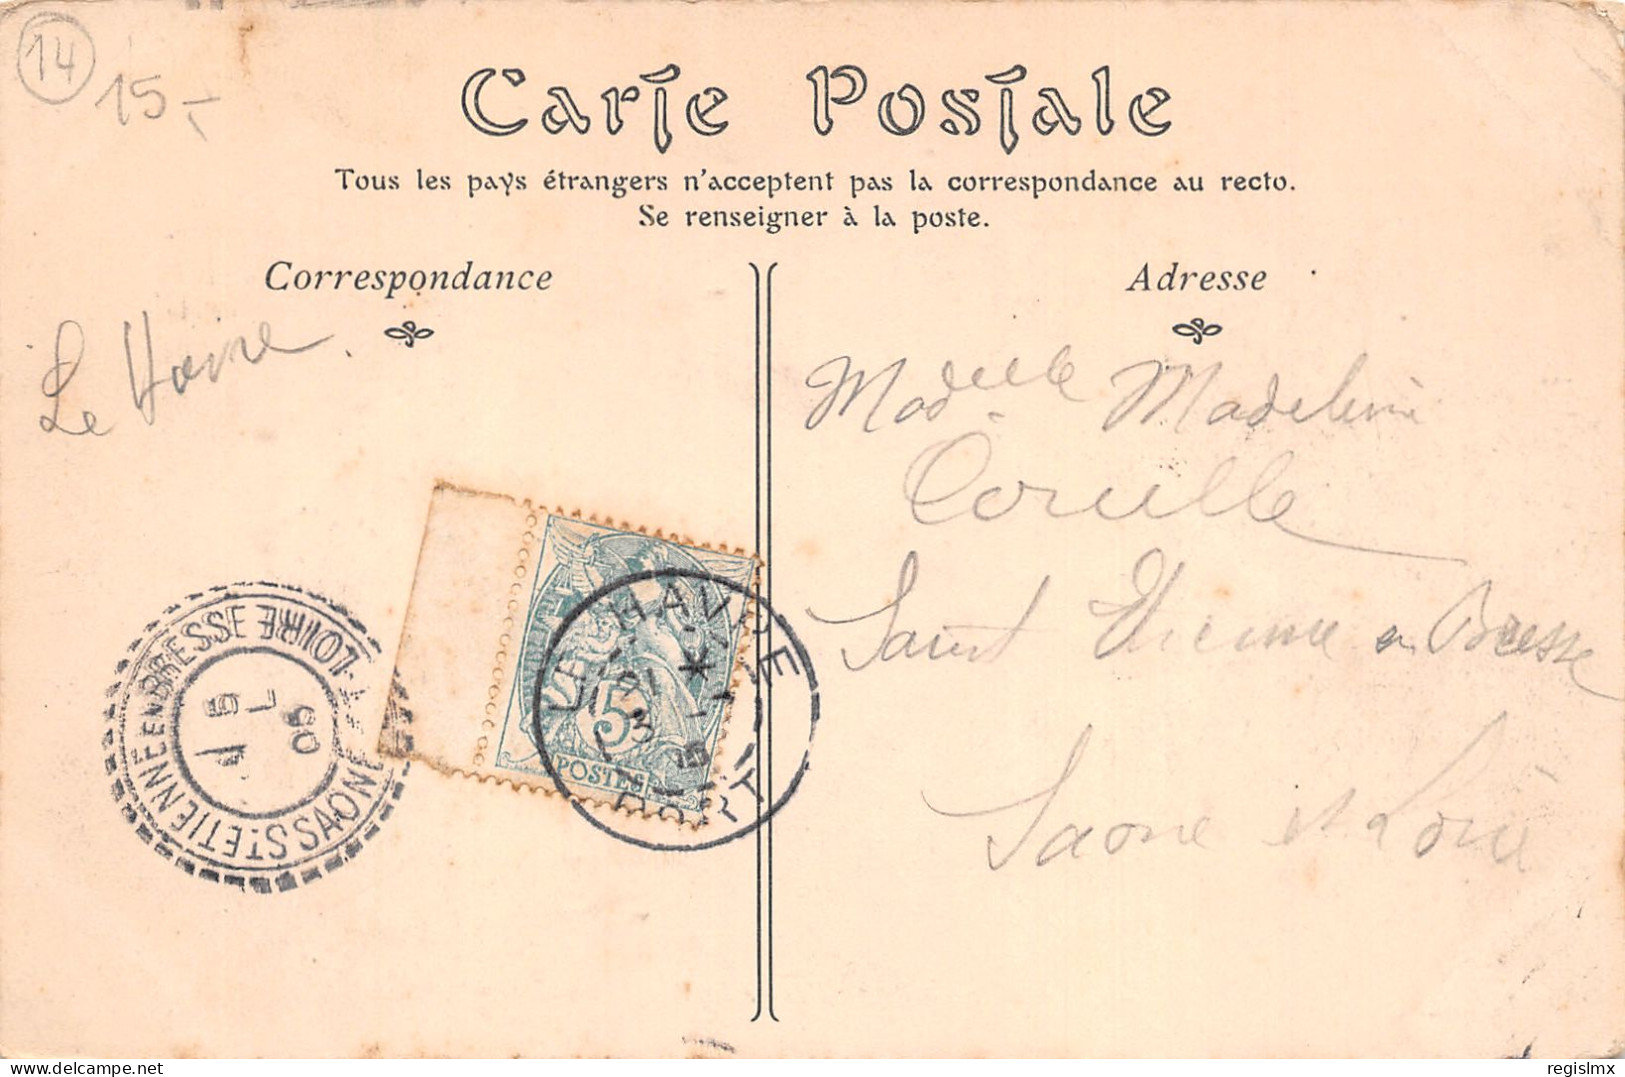 14
15-
Carte Postale
Tous les pays étrangers n'acceptent pas la correspondance au recto.
Se renseigner à la poste.
Correspondance
Adresse
Le Havre
Mademoiselle Madeleine
Saint Etienne en Bresse
Saone et Loire
ST ETIENNE EN BRESSE
SAONE-&-LOIRE
5
7
09
LE HAVRE
PORT
5
POSTES
delcampe.net
regislmx